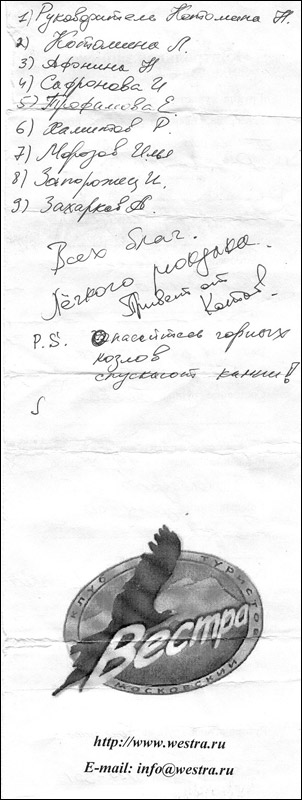 1) Руководитель Котомина Н.
2) Котомина Л.
3) Афонина Н
4) Сафронова И
5) Трефилова Е.
6) Хамитов Р.
7) Морозов Илья
8) Запорожец И.
9) Захарков А.
Всех благ.
Лёгкого рюкзака.
Привет от
Котов.
P.S. Опасайтесь горных
козлов
спускают камни!
КЛУБ ТУРИСТОВ
Вестра
МОСКОВСКИЙ
http://www.westra.ru
E-mail: info@westra.ru